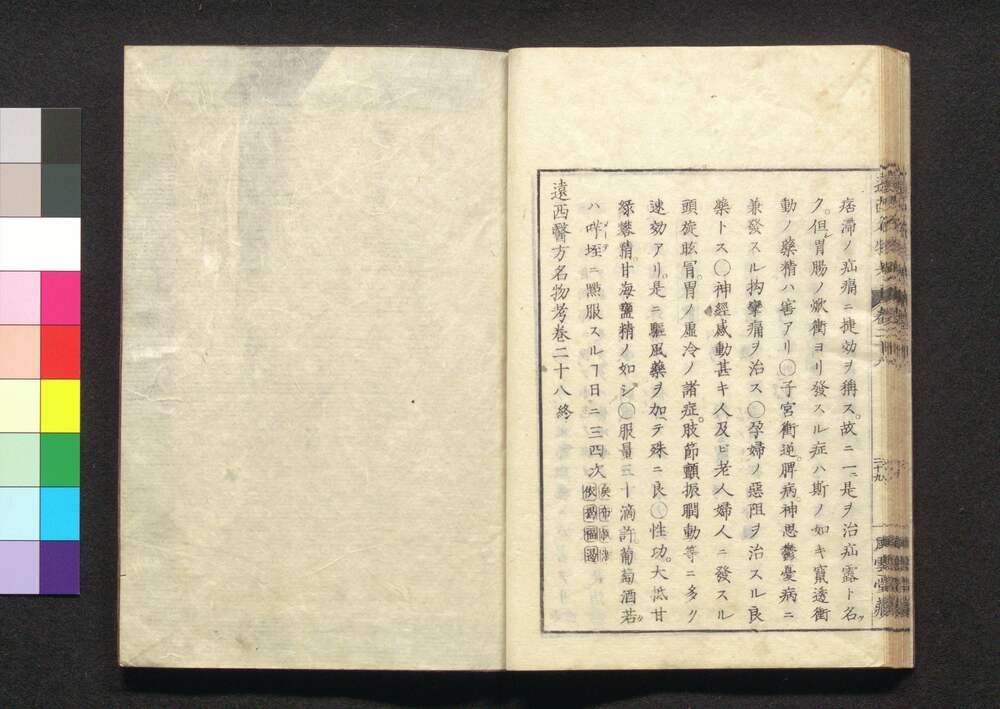 痞滞ノ疝痛ニ捷効ヲ稱ス。故ニ一ニ是ヲ治疝露ト名ヅ
ク。但胃腸ノ焮衝ヨリ發スル症ハ斯ノ如キ竄透衝
動ノ藥精ハ害アリ○子宮衝逆。脾病。神思鬱憂病ニ
兼發スル拘攣痛ヲ治ス○孕婦ノ惡阻ヲ治スル良
藥トス○神經感動甚キ人及ビ老人婦人ニ發スル
頭旋眩冒。胃ノ虚冷ノ諸症。肢節顫振瞤動等ニ多ク
速効アリ。是ニ驅風藥ヲ加ヘテ殊ニ良○性功。大抵甘
緑礬精。甘海鹽精ノ如シ○服量三十滴許葡萄酒若ク
ハ㖒埵ニ點服スルヿ日ニ三四次
遠西醫方名物考巻二十八終
二十九